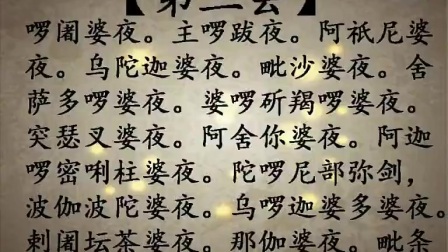 【第三会】
啰阇婆夜。主啰跋夜。阿祇尼婆
夜。乌陀迦婆夜。毗沙婆夜。舍
萨多啰婆夜。婆啰斫羯啰婆夜。
突瑟叉婆夜。阿舍你婆夜。阿迦
啰密唎柱婆夜。陀啰尼部弥剑，
波伽波陀婆夜。乌啰迦婆多婆夜。
剌阇坛茶婆夜。那伽婆夜。毗条